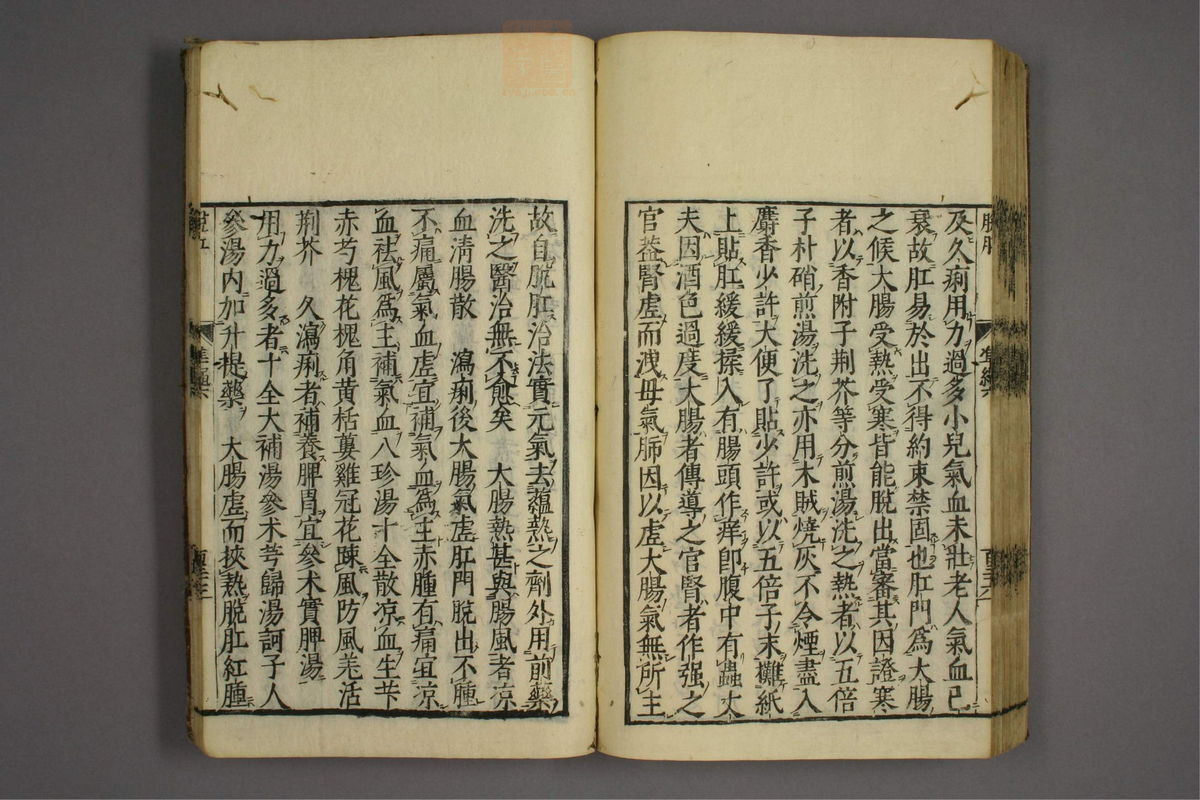 及久痢用力過多小兒氣血未壯老人氣血已
衰故肛易於出不得約束禁固也肛門為大腸
之候大腸受熱受寒皆能脫出當審其因證寒
者以香附子荆芥等分煎湯洗之熱者以五倍
子朴硝煎湯洗之亦用木賊燒灰不令煙盡入
麝香少許大便了貼少許或以五倍子末攤紙
上貼肛緩緩揉入有腸頭作痒卽腹中有蟲丈
夫因酒色過度大腸者傳導之官腎者作强之
官葢腎虛而洩母氣肺因以虛大腸氣無所主
故自脫肛治法實元氣去蘊熱之劑外用前藥
洗之醫治無不愈矣　大腸熱甚與腸風者凉
血淸腸散　瀉痢後大腸氣虛肛門脫出不腫
不痛屬氣血虛宜補氣血為主赤腫有痛宜凉
血祛風為主補氣血八珍湯十全散凉血生芐
赤芍槐花槐角黄栝蔞雞冠花踈風防風羌活
荆芥　久瀉痢者補養脾胃宜參术實脾湯
用力過多者十全大補湯參术芎歸湯訶子人
參湯内加升提藥　大腸虛而挾熱脫肛紅腫